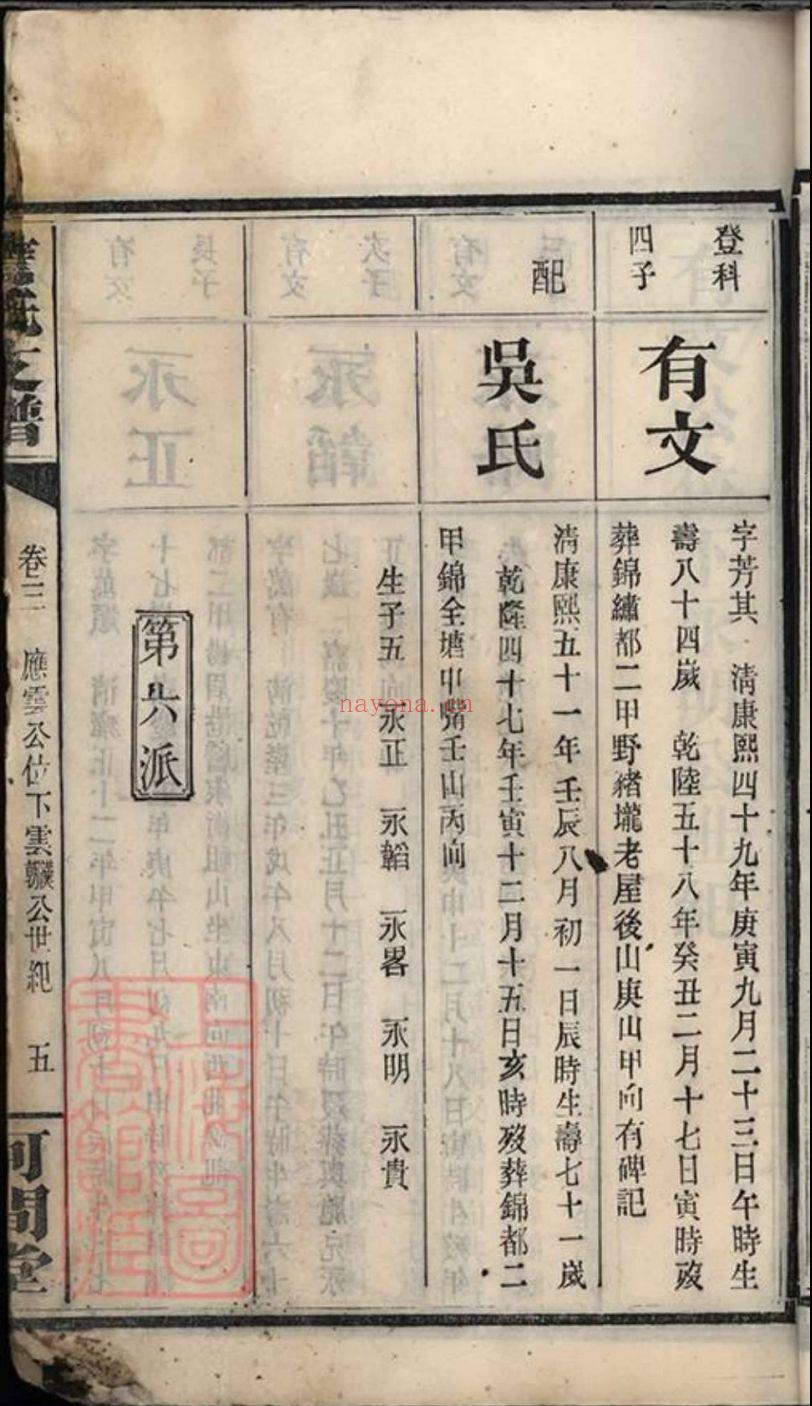 登科
四子
有文
字芳其　清康熙四十九年庚寅九月二十三日午時生
壽八十四嵗　乾陸五十八年癸丑二月十七日寅時歿
葬錦繡都二甲野豬壠老屋後山庚山甲向有碑記
配
吳氏
清康熙五十一年壬辰八月初一日辰時生壽七十一嵗
乾隆四十七年壬寅十二月十五日亥時歿葬錦都二
甲錦全塘中嘴壬山丙向
生子五　永正　永韜　永畧　永明　永貴
第六派
支譜
卷三　應雲公位下雲公世紀　五
河間堂
nayona.cn
上海圖書館藏